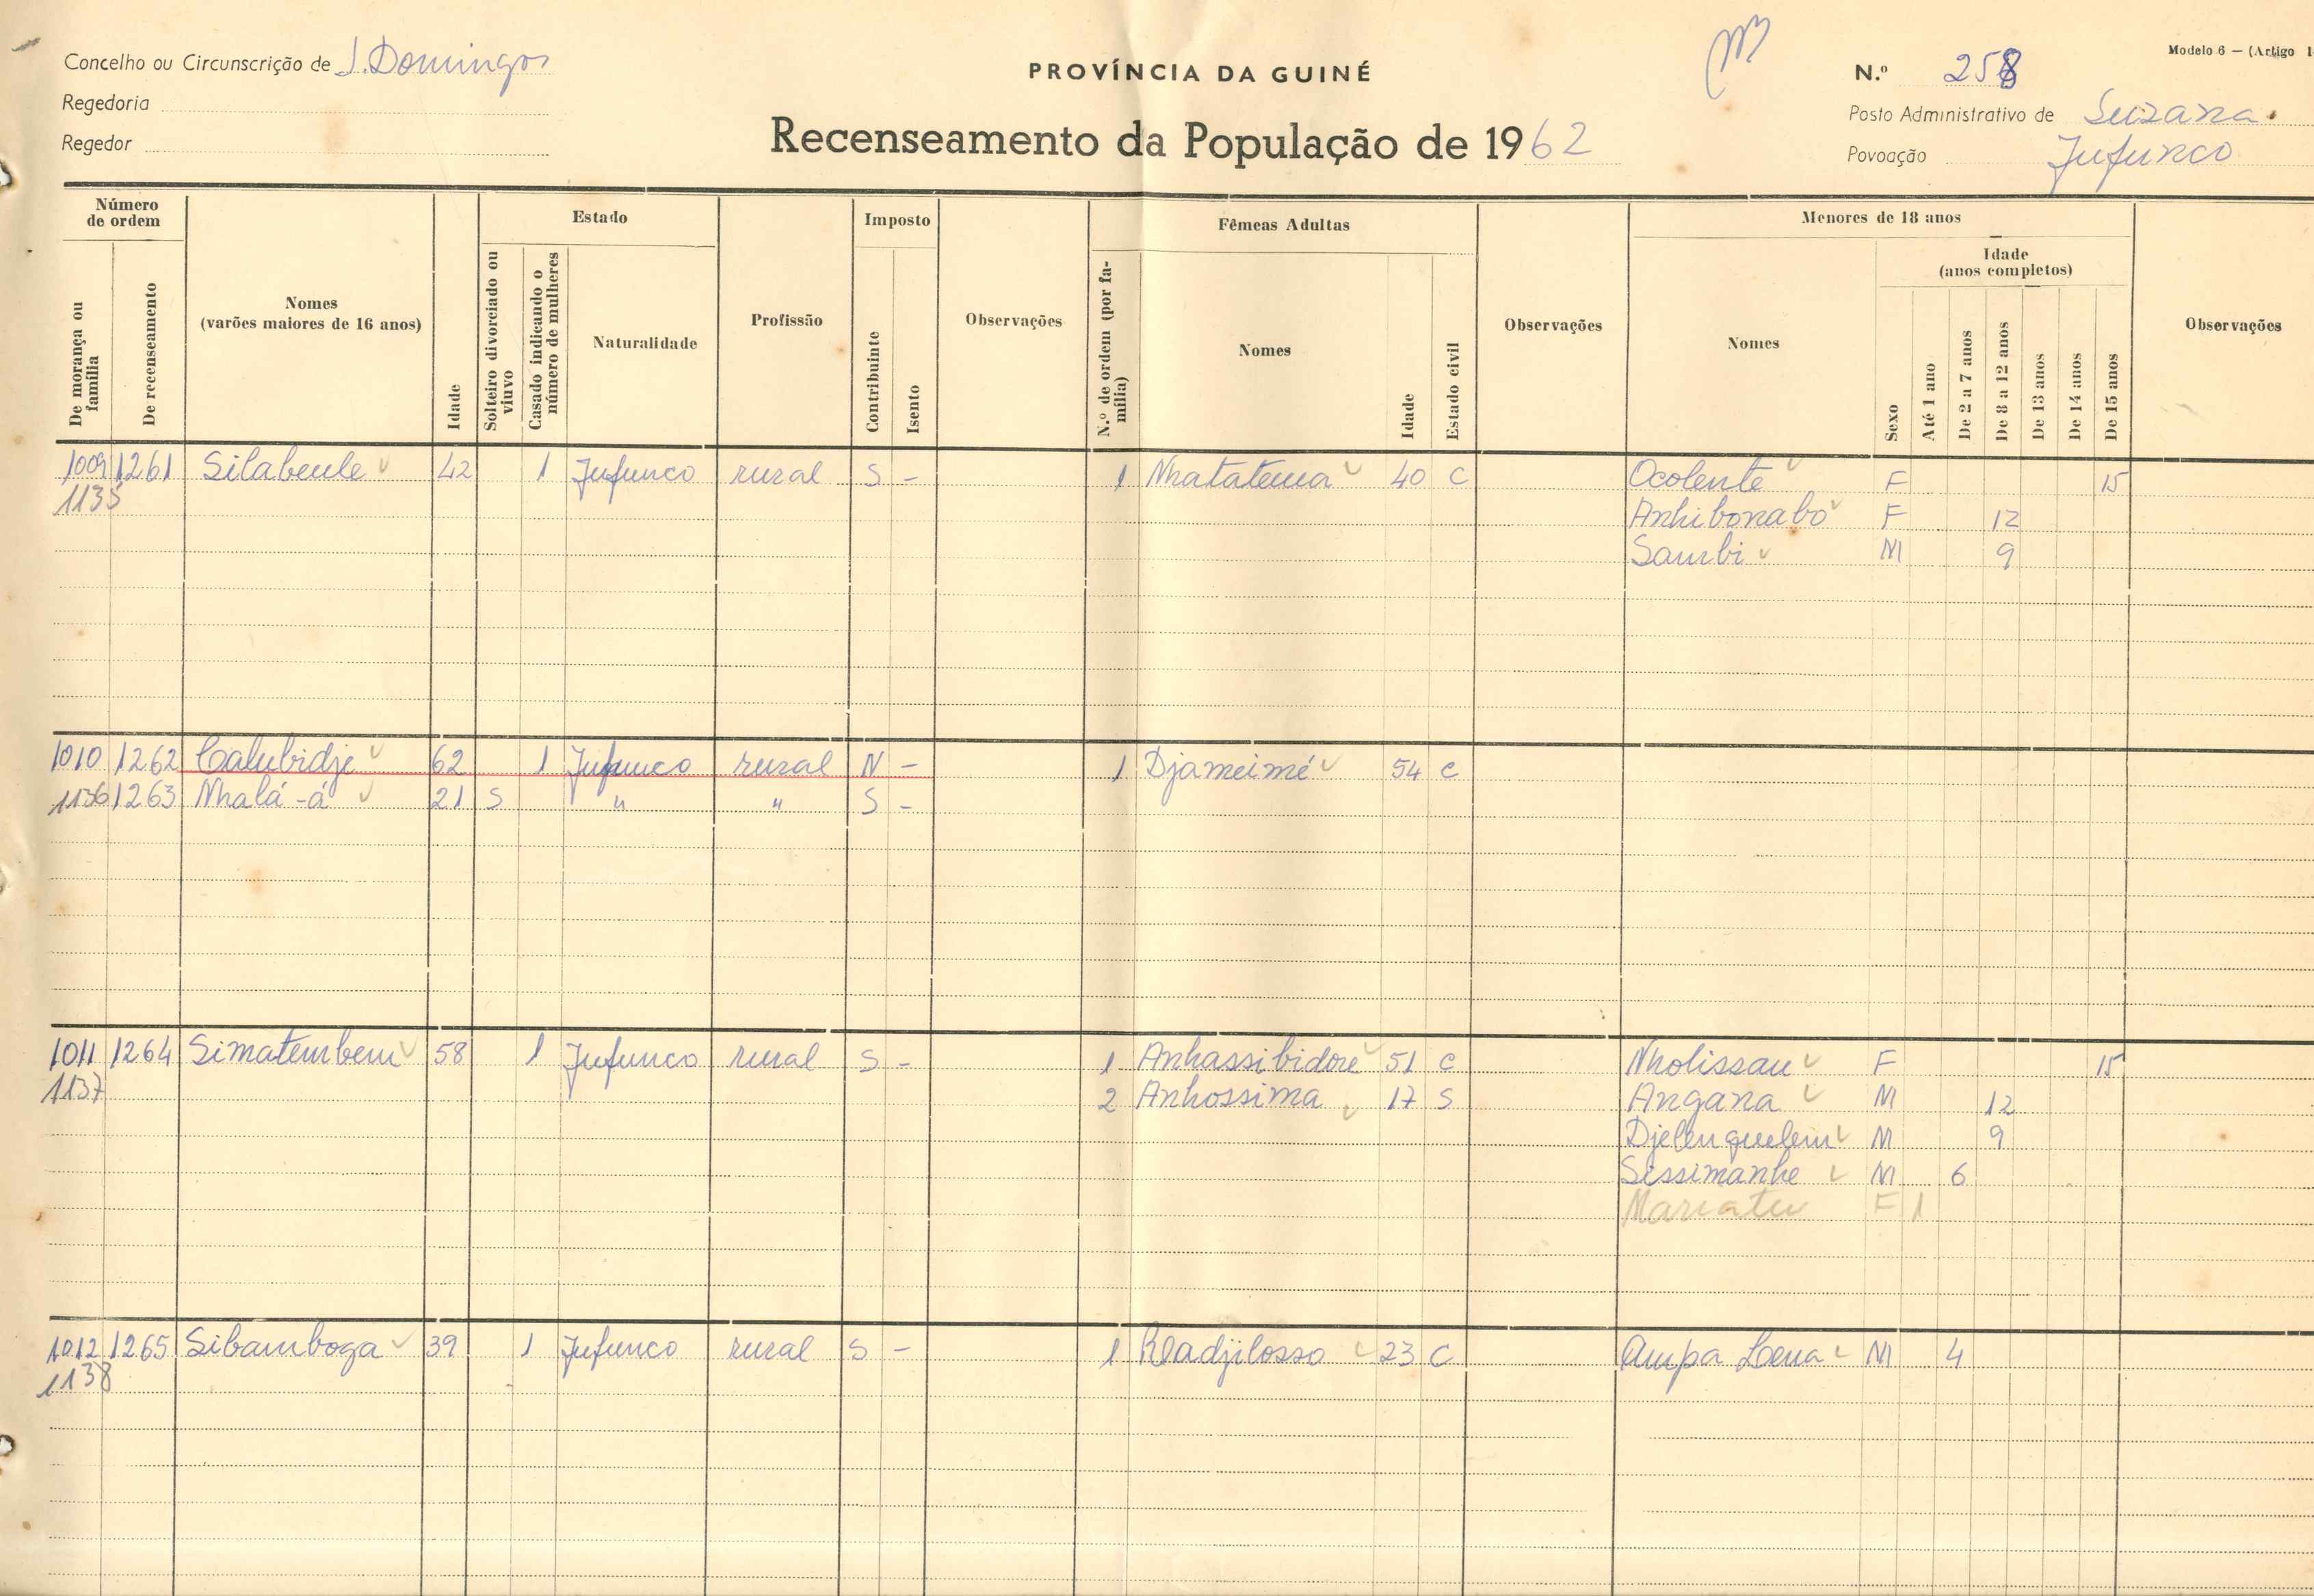 Concelho ou Circunscrição de S. Domingos
Regedoria
Regedor
PROVÍNCIA DA GUINÉ
Recenseamento da População de 1962
Modelo 6 — (Artigo 1
N.º 258
Posto Administrativo de Suzana
Povoação Jufunco
Número de ordem
De morança ou família
De recenseamento
Nomes
(varões maiores de 16 anos)
Idade
Estado
Solteiro divorciado ou viuvo
Casado indicando o número de mulheres
Naturalidade
Profissão
Imposto
Contribuinte
Isento
Observações
N.º de ordem (por família)
Fêmeas Adultas
Nomes
Idade
Estado civil
Observações
Menores de 18 anos
Nomes
Sexo
Idade
(anos completos)
Até 1 ano
De 2 a 7 anos
De 8 a 12 anos
De 13 anos
De 14 anos
De 15 anos
Observações
1009 1261 Silabeule 42 1 Jufunco rural S - 1 Nhatatema 40 C Ocolente F 15
1135 Anhibonabo F 12
Sambi M 9
1010 1262 Calubidje 62 1 Jufunco rural N - 1 Djameimé 54 C
1136 1263 Nhalá-á 21 S " " S -
1011 1264 Simatembem 58 1 Jufunco rural S - 1 Anhassibidore 51 C Nholissau F 15
1137 2 Anhossima 17 S Angana M 12
Djelenquelem M 9
Sissimanhe M 6
Mariatu F 1
1012 1265 Sibamboga 39 1 Jufunco rural S - 1 23 C Ampa Lena M 4
1138